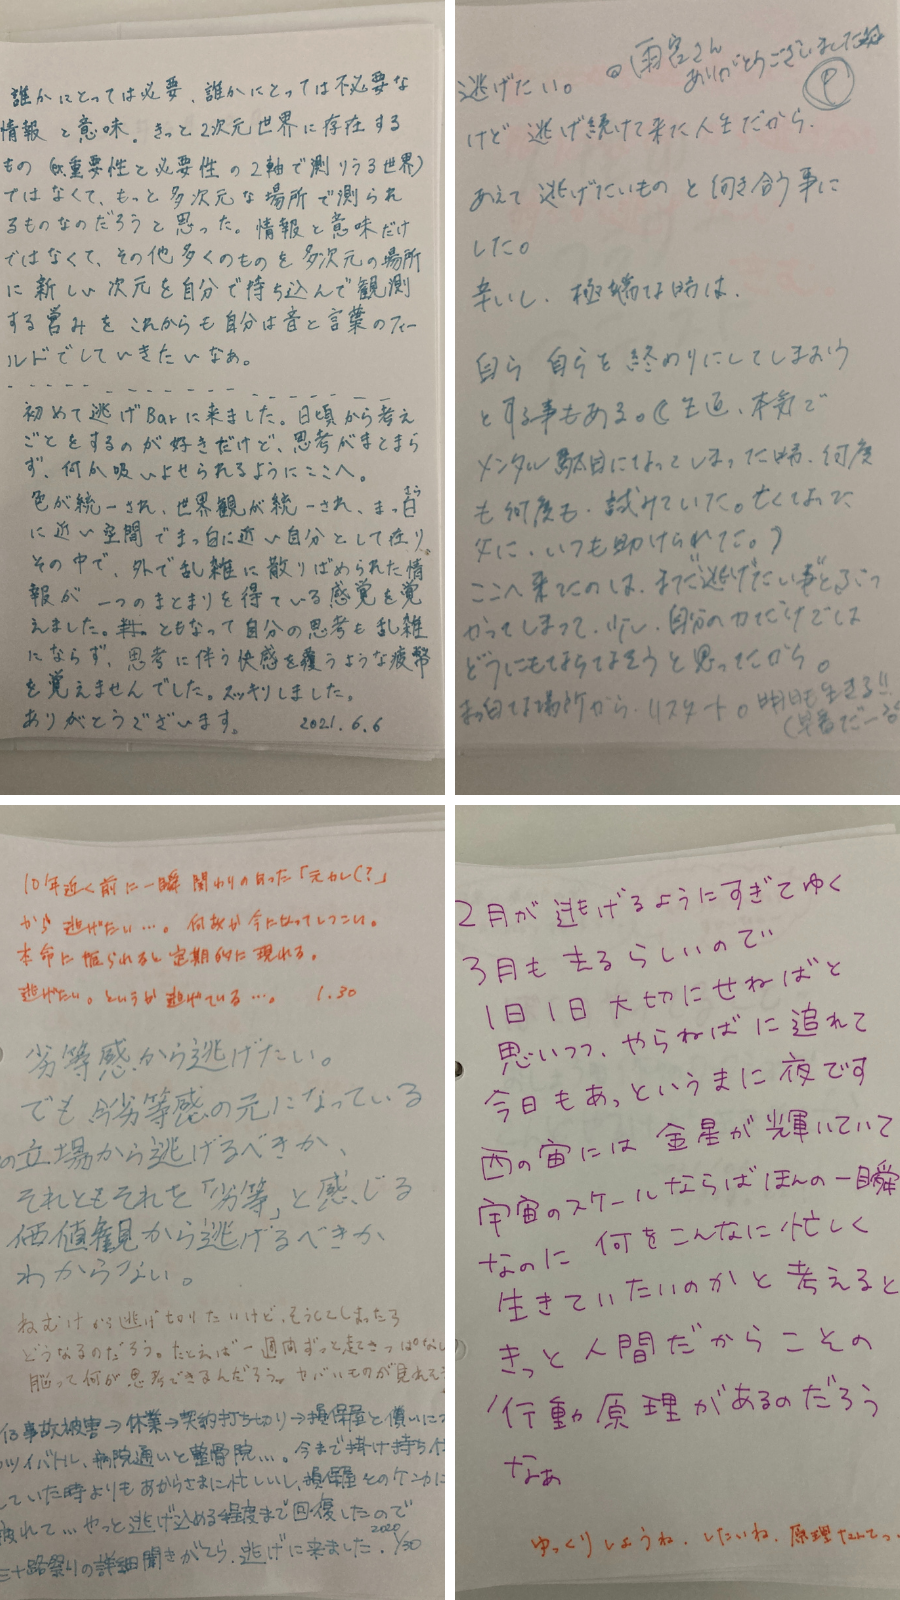 誰かにとっては必要、誰かにとっては不必要な
情報と意味。きっと2次元世界に存在する
もの(重要性と必要性の2軸で測りうる世界)
ではなくて、もっと多次元な場所で測られ
るものなのだろうと思った。情報と意味だけ
ではなくて、その他多くのものを多次元の場所
に新しい次元を自分で持ち込んで観測
する営みをこれからも自分は音と言葉のフィー
ルドでしていきたいなぁ。
初めて逃げBarに来ました。日頃から考え
ごとをするのが好きだけど、思考がまとまら
ず、何か吸いよせられるようにここへ。
色が統一され、世界観が統一され、まっ白
に近い空間でまっ白に近い自分として在り。
その中で、外で乱雑に散りばめられた情
報が一つのまとまりを得ている感覚を覚
えました。ともなって自分の思考も乱雑
にならず、思考に伴う快感を覆うような疲弊
を覚えませんでした。スッキリしました。
ありがとうございます。 2021.6.6
雨宮さん
ありがとうございました
逃げたい。
けど逃げ続けて来た人生だから、
あえて逃げたいものと向き合う事に
した。
辛いし、極端な時は、
自ら自らを終わりにしてしまおう
とする事もある。(最近、本気で
メンタル駄目になってしまった時、何度
も何度も、試みていた。亡くなった
父に、いつも助けられてた。)
ここへ来たのは、また逃げたい事とぶつ
かってしまって、少し、自分の力だけでは
どうにもならなそうと思ってたから。
まっ白な場所から、リスタート。明日も生きる!!
(早番だーる
10年近く前に一瞬関わりのあった「元カレ(?)」
から逃げたい…。何故か今になってしつこい。
本命に振られると定期的に現れる。
逃げたい。というか逃げている…。 1.30
劣等感から逃げたい。
でも今劣等感の元になっている
の立場から逃げるべきか、
それともそれを「劣等」と感じる
価値観から逃げるべきか
わからない。
ねむけから逃げ切りたいけど、そうしてしまったら
どうなるのだろう。たとえば一週間ずっと起きっぱなし
脳って何が思考できるんだろう。ヤバいものが見れそう
事故被害→休業→契約打ち切り→損保屋と償いに
ツイバトル、病院通いと整骨院…。今まで掛け持ち
していた時よりもあからさまに忙しいし、損保屋とのケンカに
疲れて…やっと逃げ込める程度まで回復したので
三十路祭りの詳細聞きがてら、逃げに来ました。2020 1/30
2月が逃げるようにすぎてゆく
3月も去るらしいので
1日1日大切にせねばと
思いつつ、やらねばに追れて
今日もあっというまに夜です
西の宙には金星が輝いていて
宇宙のスケールならばほんの一瞬
なのに何をこんなに忙しく
生きていたいのかと考えると
きっと人間だからことの
行動原理があるのだろう
なぁ
ゆっくりしようね、したいね、原理なんてっ